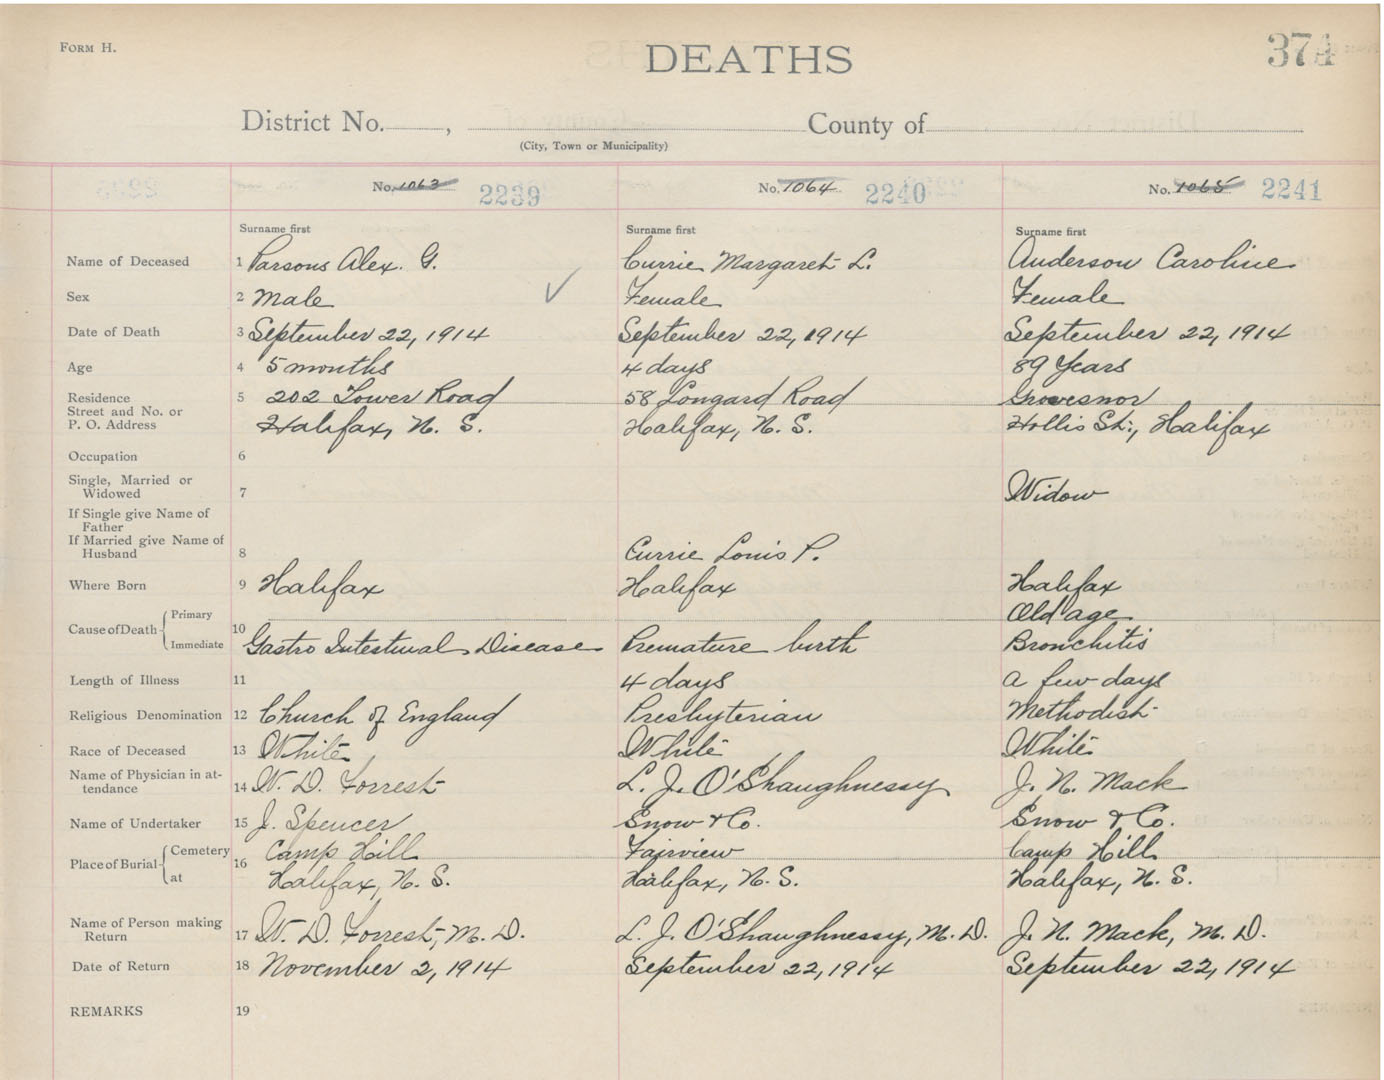 FORM H.
DEATHS
374
District No. , County of
(City, Town or Municipality)
No. 1063 2239 No. 1064 2240 No. 1065 2241
Surname first Surname first Surname first
Name of Deceased 1 Parsons Alex. G. Currie Margaret L. Anderson Caroline
Sex 2 Male Female Female
Date of Death 3 September 22, 1914 September 22, 1914 September 22, 1914
Age 4 5 months 4 days 89 Years
Residence 5 202 Tower Road 58 Longard Road Grovesnor
Street and No. or
P. O. Address Halifax, N. S. Halifax, N. S. Hollis St., Halifax
Occupation 6
Single, Married or
Widowed 7 Widow
If Single give Name of
Father
If Married give Name of
Husband 8 Currie Louis P.
Where Born 9 Halifax Halifax Halifax
Primary Old age
Cause of Death 10
Immediate Gastro Intestinal Disease Premature birth Bronchitis
Length of Illness 11 4 days a few days
Religious Denomination 12 Church of England Presbyterian Methodist
Race of Deceased 13 White White White
Name of Physician in at-
tendance 14 W. D. Forrest L. J. O'Shaughnessy J. N. Mack
Name of Undertaker 15 J. Spencer Snow & Co. Snow & Co.
Cemetery Camp Hill Fairview Camp Hill
Place of Burial 16
at Halifax, N. S. Halifax, N. S. Halifax, N. S.
Name of Person making
Return 17 W. D. Forrest, M. D. L. J. O'Shaughnessy, M. D. J. N. Mack, M. D.
Date of Return 18 November 2, 1914 September 22, 1914 September 22, 1914
REMARKS 19